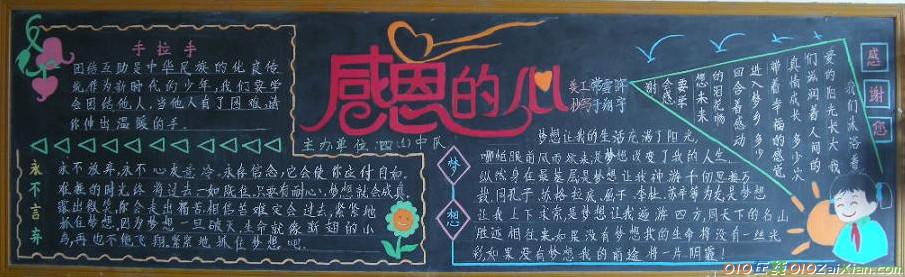 手拉手
团结互助是中华民族的优良传
统,作为新时代的少年,我们要学
会团结他人,当他人有了困难,请
你伸出温暖的手。
感恩的心
美工
抄写
主办单位
中队
永不言弃
永不放弃,永不心灰意冷。永存信念,它会使你应付自如。
难熬的时光终将过去,一如既往,只要有耐心,梦想就会成真。
露出微笑,你会走出痛苦,相信苦难定会过去,紧紧地
抓住梦想,因为梦想一旦破灭,生命就像断翅的小
鸟,再也不能飞翔,紧紧地抓住梦想吧
梦想
梦想让我的生活充满了阳光,
哪怕眼前风雨欲来,是梦想改变了我的人生,
让我上下求索,是梦想让我遨游四方,同天下的名山
胜迹相往来,如果没有梦想我的生命将没有一丝光
彩,如果没有梦想我的前途将一片阴霾!
我们沐浴着
爱的阳光长大,我
们滋润着人间的
真情成长,多少次
带着幸福的感觉
进入梦乡,多少
回含着感动
的泪花畅
想未来
要学
会感
谢
感谢您
010在线010ZaiXian.com